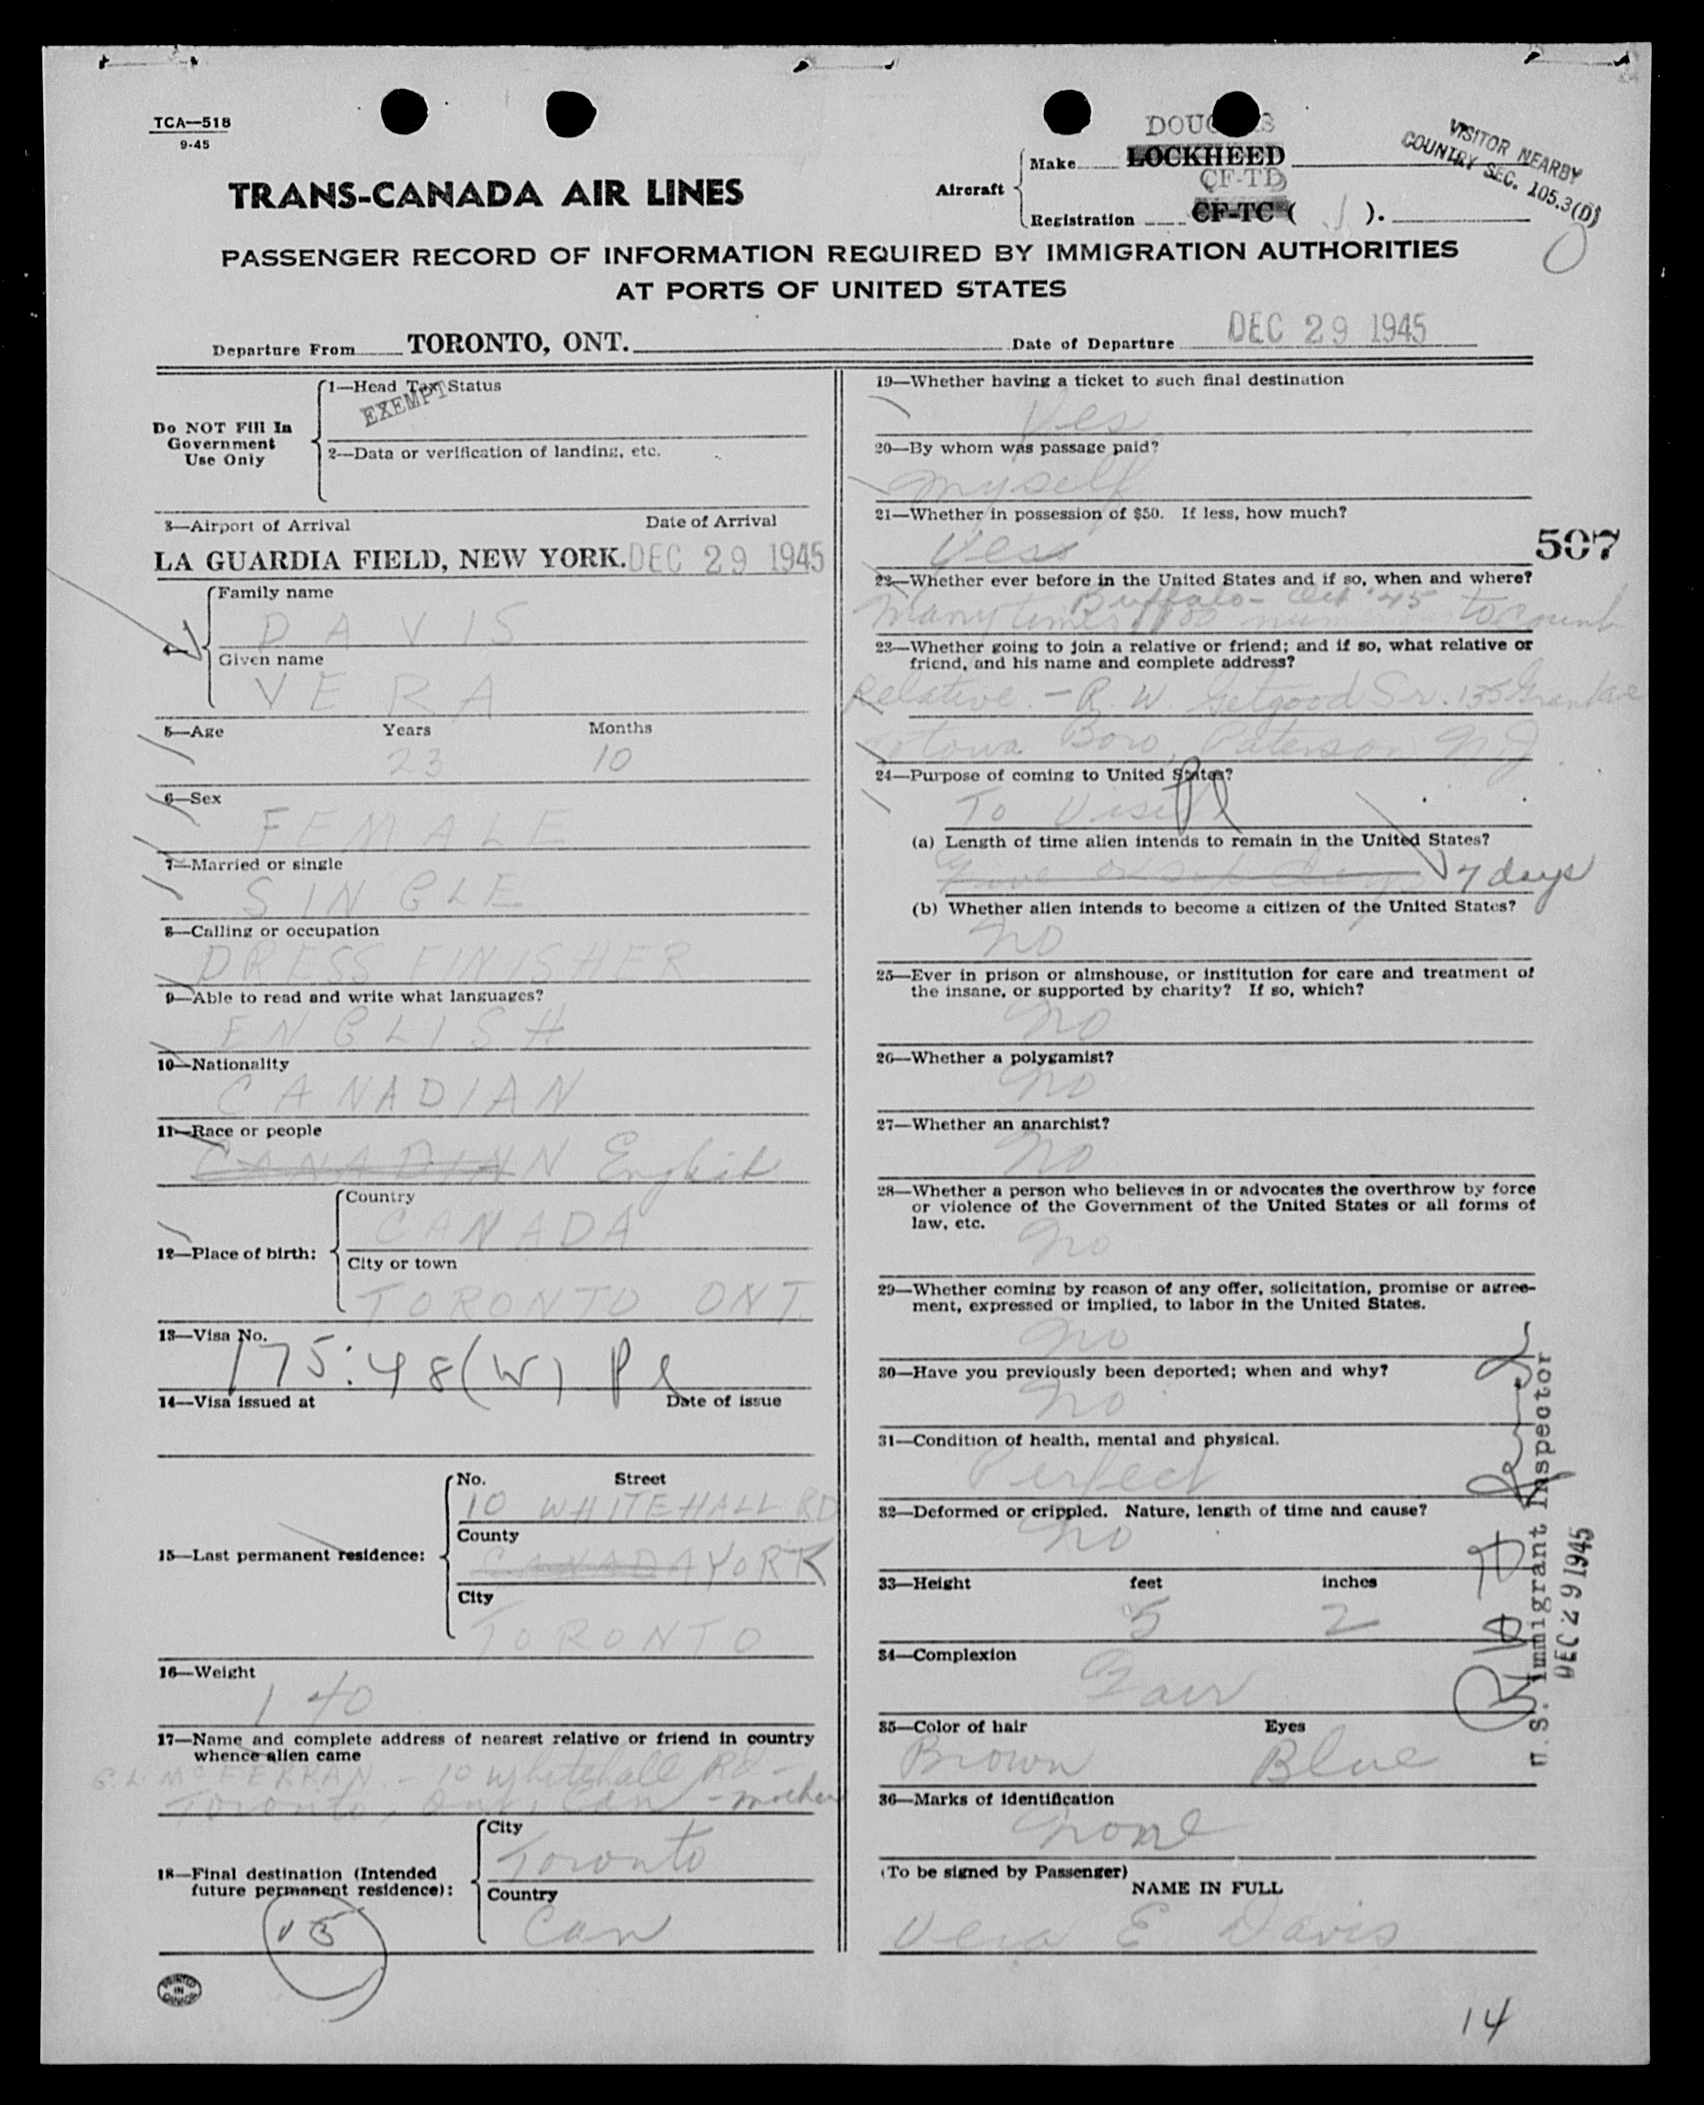 TCA—518
9-45
TRANS-CANADA AIR LINES
Aircraft
Make
DOUGLAS
LOCKHEED
CF-TD
Registration
CF-TC ( J ).
VISITOR NEARBY
COUNTRY SEC. 105.3(D)
PASSENGER RECORD OF INFORMATION REQUIRED BY IMMIGRATION AUTHORITIES
AT PORTS OF UNITED STATES
Departure From TORONTO, ONT. Date of Departure DEC 29 1945
Do NOT Fill In
Government
Use Only
1—Head Tax Status
EXEMPT
2—Data or verification of landing, etc.
3—Airport of Arrival Date of Arrival
LA GUARDIA FIELD, NEW YORK. DEC 29 1945
Family name
DAVIS
Given name
VERA
5—Age Years Months
23 10
6—Sex
FEMALE
7—Married or single
SINGLE
8—Calling or occupation
DRESS FINISHER
9—Able to read and write what languages?
ENGLISH
10—Nationality
CANADIAN
11—Race or people
CANADIAN English
12—Place of birth:
Country
CANADA
City or town
TORONTO ONT.
13—Visa No.
175:48(W)
14—Visa issued at Date of issue
15—Last permanent residence:
No. Street
10 WHITEHALL RD
County
CANADA YORK
City
TORONTO
16—Weight
140
17—Name and complete address of nearest relative or friend in country
whence alien came
G. L. McFERRAN - 10 Whitehall Rd -
Toronto, Ont, Can - mother
18—Final destination (Intended
future permanent residence):
City
Toronto
Country
Can
PRINTED
IN
CANADA
19—Whether having a ticket to such final destination
Yes
20—By whom was passage paid?
Myself
21—Whether in possession of $50. If less, how much?
Yes
507
22—Whether ever before in the United States and if so, when and where?
Buffalo - Oct '45
Many times too to count
23—Whether going to join a relative or friend; and if so, what relative or
friend, and his name and complete address?
Relative - R. W. Getgood Sr. 135 Grant Ave
Totowa Boro, Paterson N.J.
24—Purpose of coming to United States?
To Visit
(a) Length of time alien intends to remain in the United States?
Five or six days 7 days
(b) Whether alien intends to become a citizen of the United States?
No
25—Ever in prison or almshouse, or institution for care and treatment of
the insane, or supported by charity? If so, which?
No
26—Whether a polygamist?
No
27—Whether an anarchist?
No
28—Whether a person who believes in or advocates the overthrow by force
or violence of the Government of the United States or all forms of
law, etc.
No
29—Whether coming by reason of any offer, solicitation, promise or agree-
ment, expressed or implied, to labor in the United States.
No
30—Have you previously been deported; when and why?
No
31—Condition of health, mental and physical.
Perfect
32—Deformed or crippled. Nature, length of time and cause?
No
33—Height feet inches
5 2
34—Complexion
Fair
35—Color of hair Eyes
Brown Blue
36—Marks of identification
None
(To be signed by Passenger)
NAME IN FULL
Vera E. Davis
U.S. Immigrant Inspector
DEC 29 1945
14